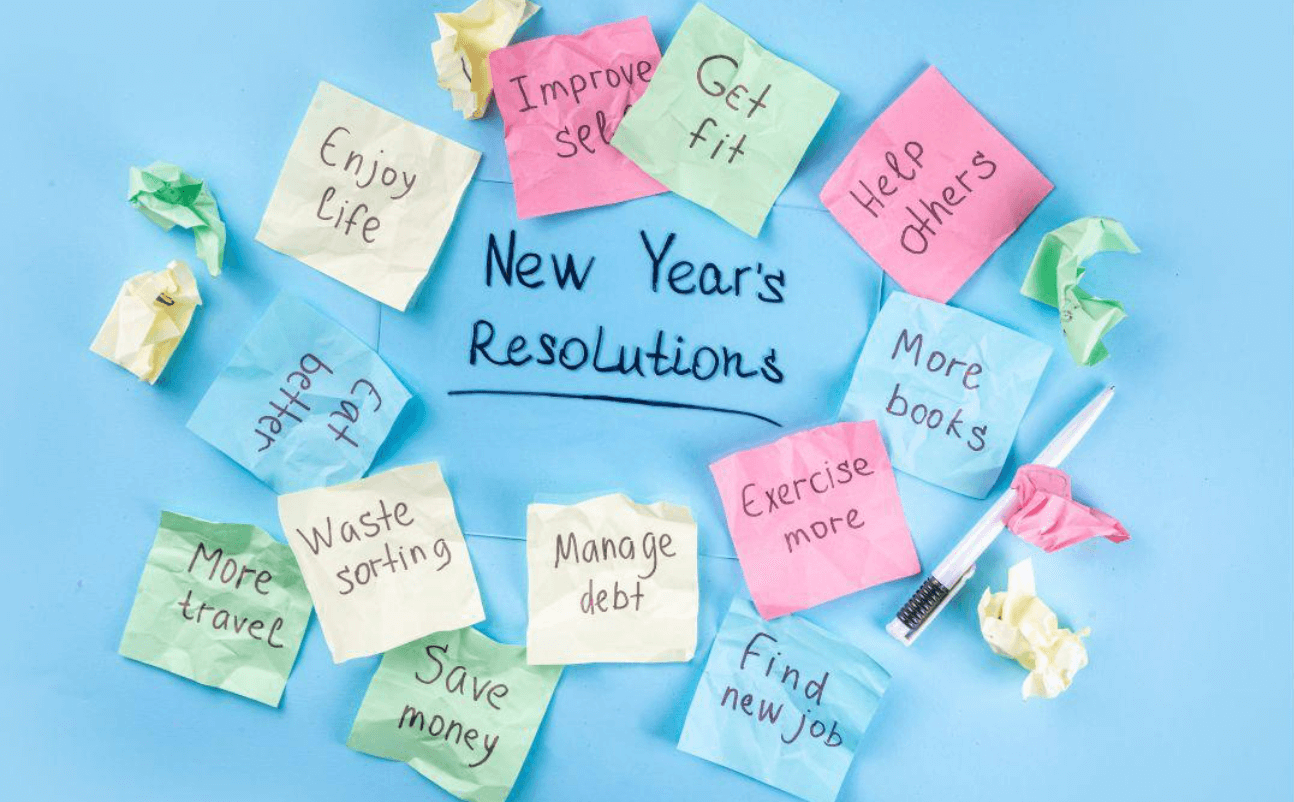 New Year's
Resolutions
Enjoy
life
Improve
self
Get
fit
Help
others
More
books
Exercise
more
Find
new job
Manage
debt
Save
money
Waste
sorting
More
travel
Eat
better